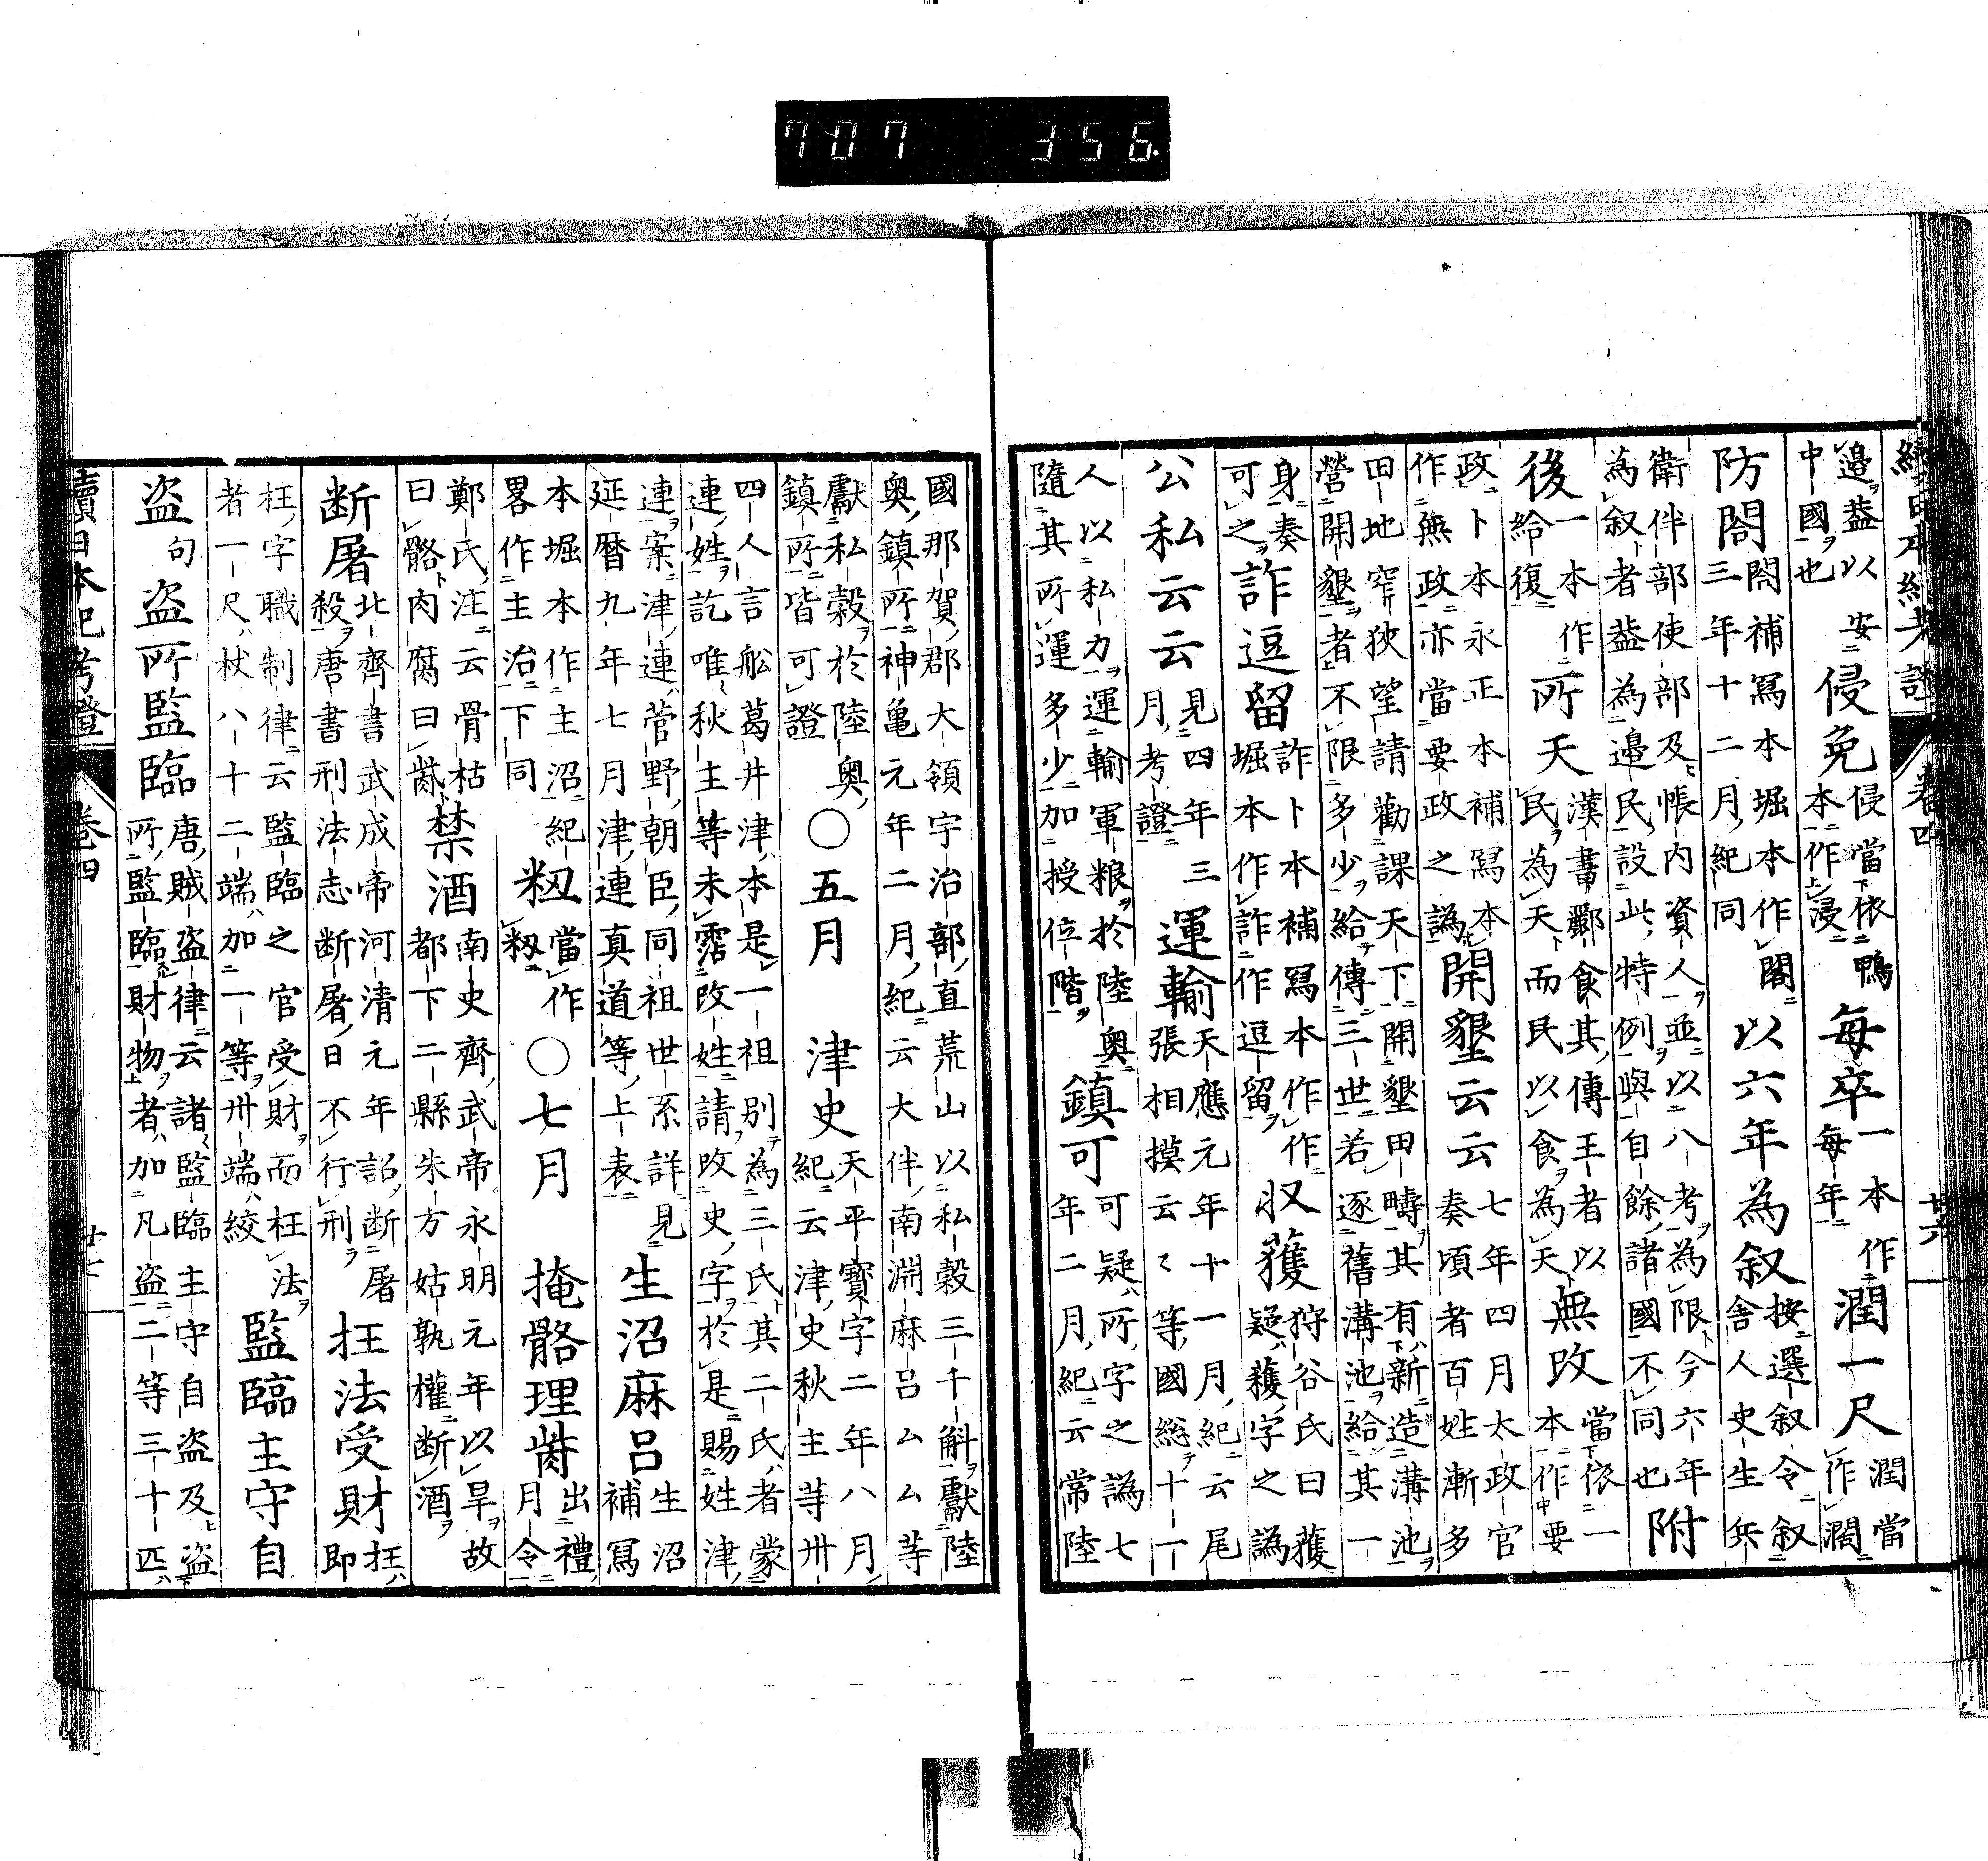 續日本紀考證 卷四 廿六
邉蓋以安
中國也
侵免
侵當依鴨
本作浸
毎卒
一本作
毎年
潤一尺
潤當
作濶
防閤
閤補寫本堀本作閣
三年十二月紀同
以六年為叙
按選叙令叙
舎人史生兵
衛伴部使部及帳内資人並以八考為限今六年
為叙者蓋為邉民設此特例與自餘諸國不同也
附
後
一本作
給復
所天
漢書酈食其傳王者以
民為天而民以食為天
無改
當依一
本作要
政卜本永正本補寫本
作無政亦當要政之譌
開墾云云
七年四月太政官
奏頃者百姓漸多
田地窄狹望請勸課天下開墾田疇其有新造溝池
營開墾者不限多少給傳三世若逐舊溝池給其一
身奏
可之
詐逗留
詐卜本補寫本作作
堀本作詐作逗留
収獲
狩谷氏曰獲
疑穫字之譌
公私云云
見四年三
月考證
運輸
天應元年十一月紀云尾
張相摸云〻等國総十一
人以私力運輸軍粮於陸奥
隨其所運多少加授位階
鎮可
可疑所字之譌七
年二月紀云常陸
國那賀郡大領宇治部直荒山以私穀三千斛獻陸
奥鎮所神亀元年二月紀云大伴南淵麻呂ムム等
獻私穀於陸奥
鎮所皆可證
○五月
津史
天平寳字二年八月
紀云津史秋主等卅
四人言舩葛井津本是一祖別為三氏其二氏者蒙
連姓訖唯秋主等未霑改姓請改史字於是賜姓津
連案津連菅野朝臣同祖世系詳見
延暦九年七月津連真道等上表
生沼麻呂
生沼
補寫
本堀本作主沼紀
畧作主治下同
籾
當作
籾
○七月
掩骼理胔
出禮
月令
鄭氏注云骨枯
曰骼肉腐曰胔
禁酒
南史齊武帝永明元年以旱故
都下二縣朱方姑孰權断酒
断屠
北齊書武成帝河清元年詔断屠
殺唐書刑法志断屠日不行刑
枉法受財
枉
即
枉字職制律云監臨之官受財而枉法
者一尺杖八十二端加一等卅端絞
監臨主守自
盗
句
盗所監臨
唐賊盗律云諸監臨主守自盗及盗
所監臨財物者加凡盗二等三十匹
續日本紀考證 卷四 廿七